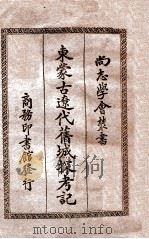 尚志學會叢書
東蒙古遼代舊城探考記
商務印書館發行
www.duxiu.com